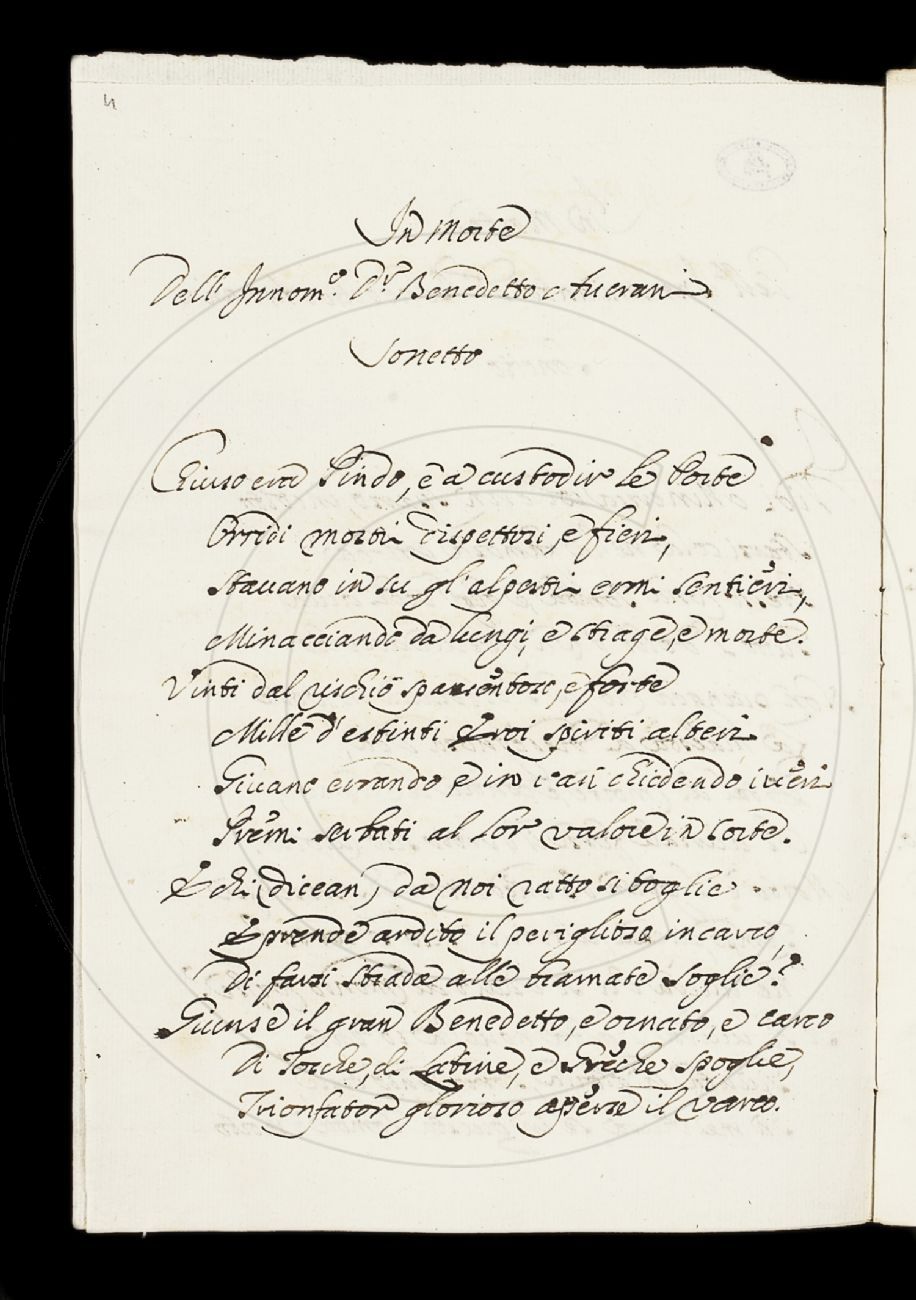 4
In Morte
Dell' Innom.º D.r Benedetto Averani
Sonetto
Chiuso era Pindo, e a custodir le Porte
Orridi mostri dispettosi, e fieri,
Stavano in su gl'alpestri ermi sentieri,
Minacciando da lungi, e strage, e morte.
Vinti dal rischio spaventoso, e forte
Mille d'estinti Eroi spiriti alteri
Givano errando, e in van chiedendo i veri
Premi serbati al lor valore in sorte.
E chi (dicean) da noi ratto si toglie
E prende ardito il periglioso incarco,
Di farsi strada alle bramate soglie?
Giunse il gran Benedetto, e ornato, e carco
Di Tosche, di Latine, e Greche spoglie,
Trionfator glorioso aperse il varco.